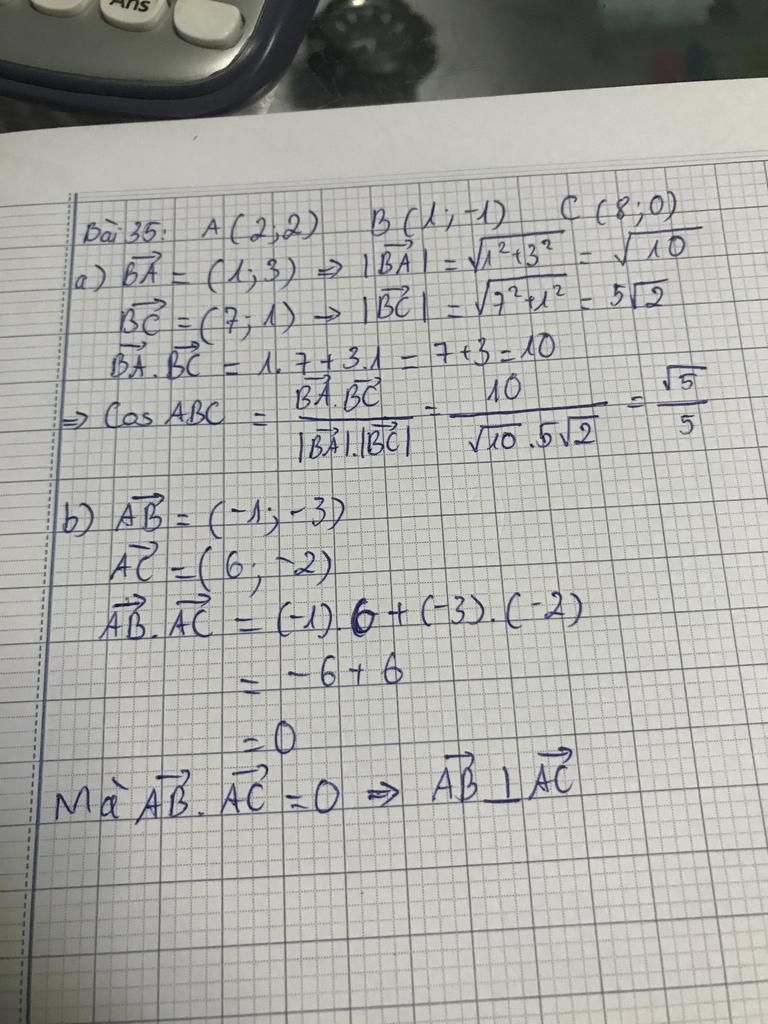 Ans
Bài 35: A(2;2) B(1;-1) C(8;0)
a) $\overrightarrow{BA}$ = (1;3) ⇒ |$\overrightarrow{BA}$| = $\sqrt{1^2+3^2}$ = $\sqrt{10}$
$\overrightarrow{BC}$ = (7;1) → |$\overrightarrow{BC}$| = $\sqrt{7^2+1^2}$ = 5$\sqrt{2}$
$\overrightarrow{BA}$.$\overrightarrow{BC}$ = 1.7+3.1 = 7+3=10
⇒ Cos ABC = $\frac{\overrightarrow{BA}.\overrightarrow{BC}}{|\overrightarrow{BA}|.|\overrightarrow{BC}|}$ = $\frac{10}{\sqrt{10}.5\sqrt{2}}$ = $\frac{\sqrt{5}}{5}$
b) $\overrightarrow{AB}$ = (-1;-3)
$\overrightarrow{AC}$ = (6;-2)
$\overrightarrow{AB}$.$\overrightarrow{AC}$ = (-1).6+(-3).(-2)
= -6+6
= 0
Mà $\overrightarrow{AB}$.$\overrightarrow{AC}$ = 0 ⇒ $\overrightarrow{AB}$ ⊥ $\overrightarrow{AC}$